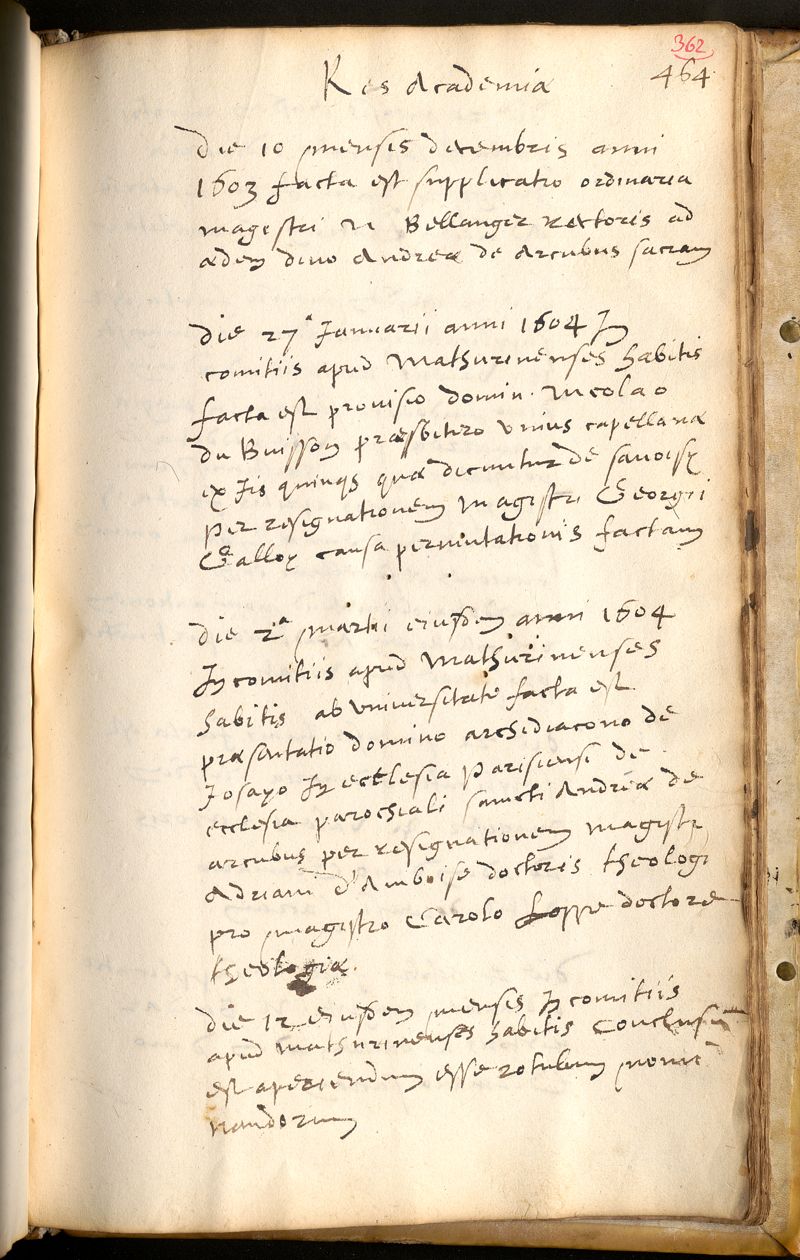 362
464
Res Academiæ
Die 10 mensis decembris anni
1603 facta est supplicatio ordinaria
magistri N Bellanger Rectoris ad
ædem divo Andreæ de Arcubus sacram
Die 27ª Januarii anni 1604 In
comitiis apud Mathurinenses habitis
facta est provisio domin. Nicolao
du Buisson præsbitero unius capellaniæ
ex iis quinqs quæ dicuntur de savoisy
per resignationem magistri Georgii
Galloy causa permutationis factam
Die 2ª martii eiusdem anni 1604
In comitiis apud Mathurinenses
habitis ab universitate facta est
præsentatio domino archidiacono de
Josayo In ecclesia Parisiensi de
ecclesia parochiali sancti Andreæ de
arcubus per resignationem magistri
Adriani d'Amboise doctoris theologi
pro magistro Carolo Loppe doctore
theologiæ.
Die 12 eiusdem mensis In comitiis
apud mathurinenses habitis Conclusū
est aperiendum esse rotulum nomi
nandorum